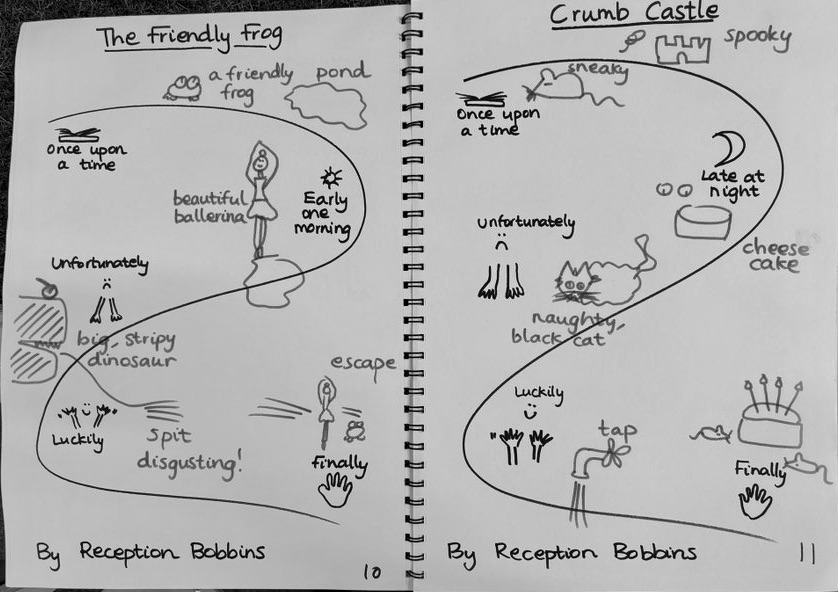 The Friendly Frog
a friendly
frog
pond
Once upon
a time
beautiful
ballerina
Early
one
morning
Unfortunately
big, stripy
dinosaur
escape
Luckily
Spit
disgusting!
Finally
By Reception Bobbins
10
Crumb Castle
spooky
sneaky
Once upon
a time
Late at
night
Unfortunately
cheese
cake
naughty,
black cat
Luckily
tap
Finally
By Reception Bobbins
11